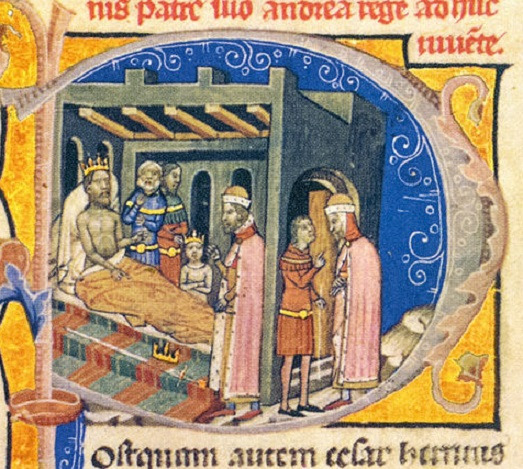 nis patre suo andrea rege adhuc
iuuẽte.
Ostquam autem cesar henricus